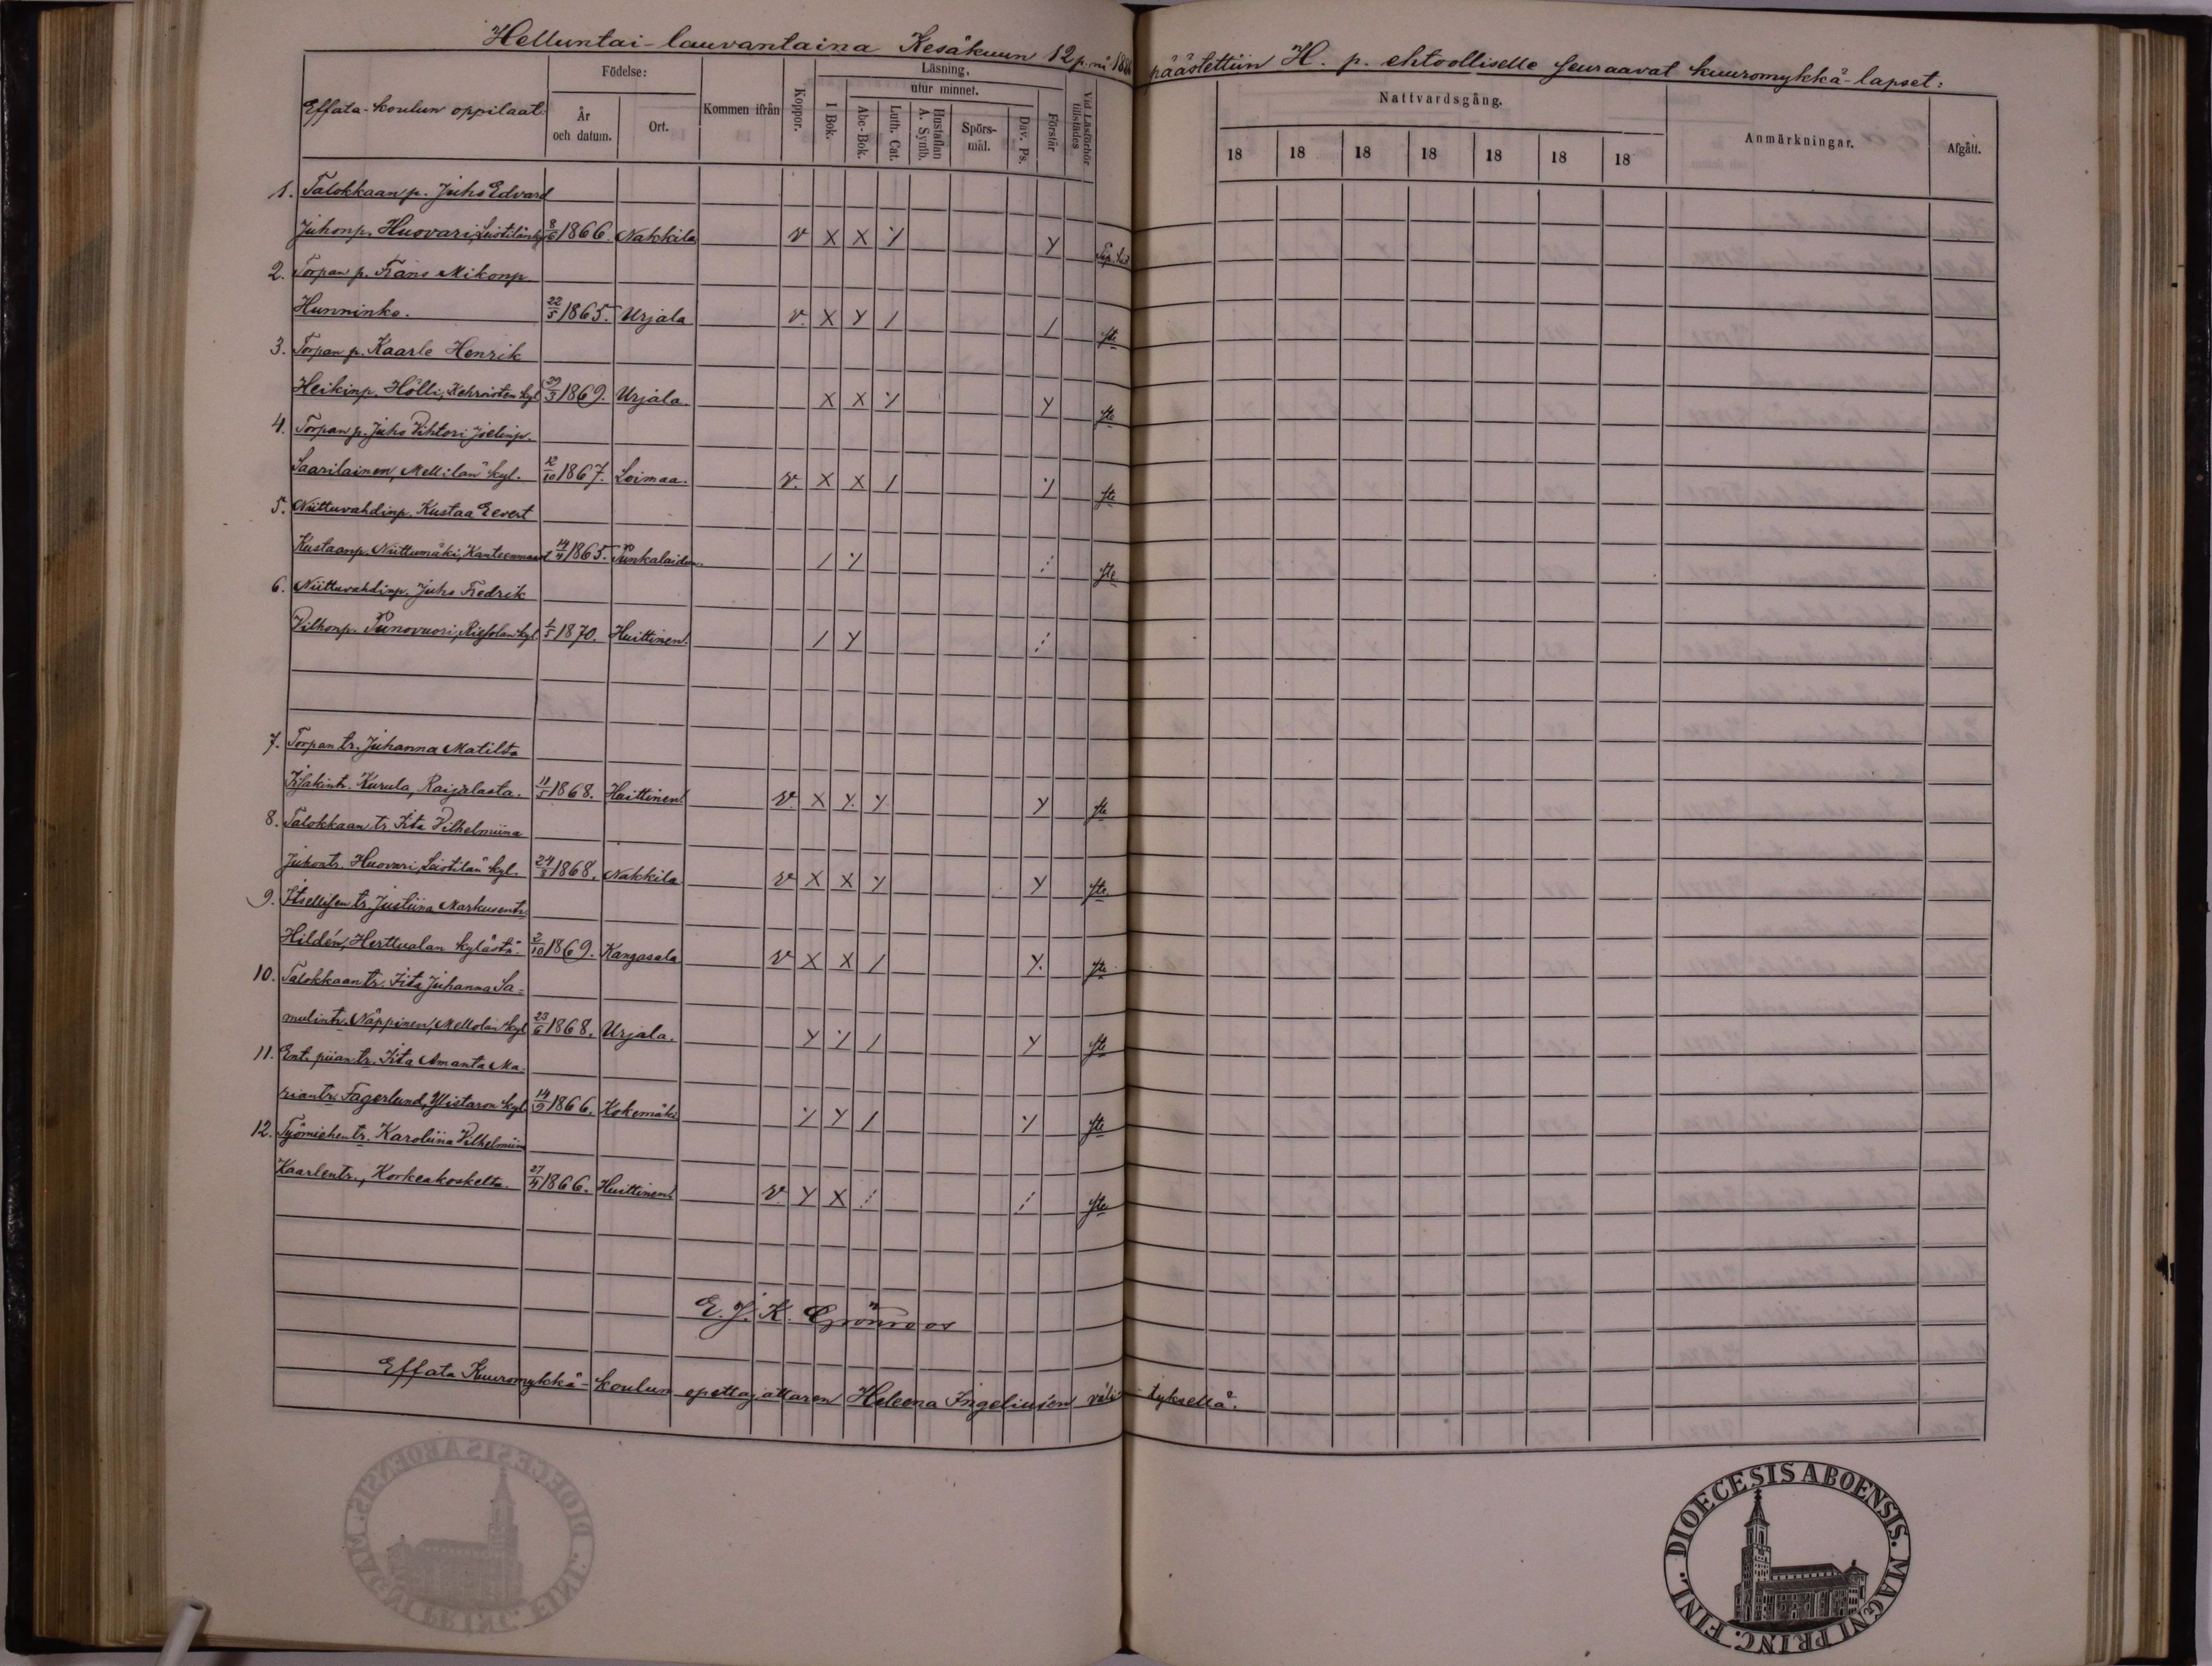 Helluntai-lauvantaina Kesäkuun 12 p:nä 1886 päästettiin H. p. ehtoolliselle seuraavat kuuromykkä-lapset:
Effata-koulun oppilaat:
Födelse:
År och datum.
Ort.
Kommen ifrån
Koppor.
Läsning,
I Bok.
utur minnet.
Abc-Bok.
Luth. Cat.
Hustaflan A. Symb.
Spörsmål.
Dav. Ps.
Förstår
Vid Läsförhör tillstädes
Nattvardsgång.
18 18 18 18 18 18 18
Anmärkningar.
Afgått.
1. Talokkaan p. Juho Edvard
Juhonp. Huovari, Leistilän kyl. 1866. Nakkila v X X
2. Torpan p. Frans Mikonp.
Hunninko. 22/5 1865. Urjala v. X Y /
3. Torpan p. Kaarle Henrik
Heikinp. Hölli, 29/3 1869. Urjala. X X
4. Torpan p. Juho Vihtori Joelinp.
Saarilainen, Mellilän kyl. 12/10 1867. Loimaa. v. X X /
5. Niittuvahdinp. Kustaa Evert
Kustaanp. Niittumäki, 14/4 1865. Punkalaidun.
6. Niittuvahdinp. Juho Fredrik
Vilhonp. Punovuori, 1870. Huittinen.
7. Torpan tr. Juhanna Matilta
Iisakintr. Kurula, Raijalasta. 11/5 1868. Huittinen v. X Y Y
8. Talokkaan tr. Iita Vilhelmiina
Juhontr. Huovari, Leistilän kyl. 1868. Nakkila v X X Y
9. Itsellisen tr. Justiina Markusentr.
Hildén, Herttualan kylästä. 2/10 1869. Kangasala v X X /
10. Talokkaan tr. Iita Juhanna Sa=
mulintr. Näppinen, Mellolan kyl 23/6 1868. Urjala.
11. Ent. piian tr. Iita Amanta Ma-
riantr. Fagerlund, Ylistaron kyl. 1866. Kokemäki
12. Työmiehen tr. Karoliina Vilhelmiina
Kaarlentr., Korkeakoskelta. 1866. Huittinen. v. Y X
E. J. K. Grönroos
Effata Kuuromykkä-koulun opettajattaren Heleena Ingeliusen välityksellä.
DIOECESIS ABOENSIS. MAGNI PRINC. FINL.